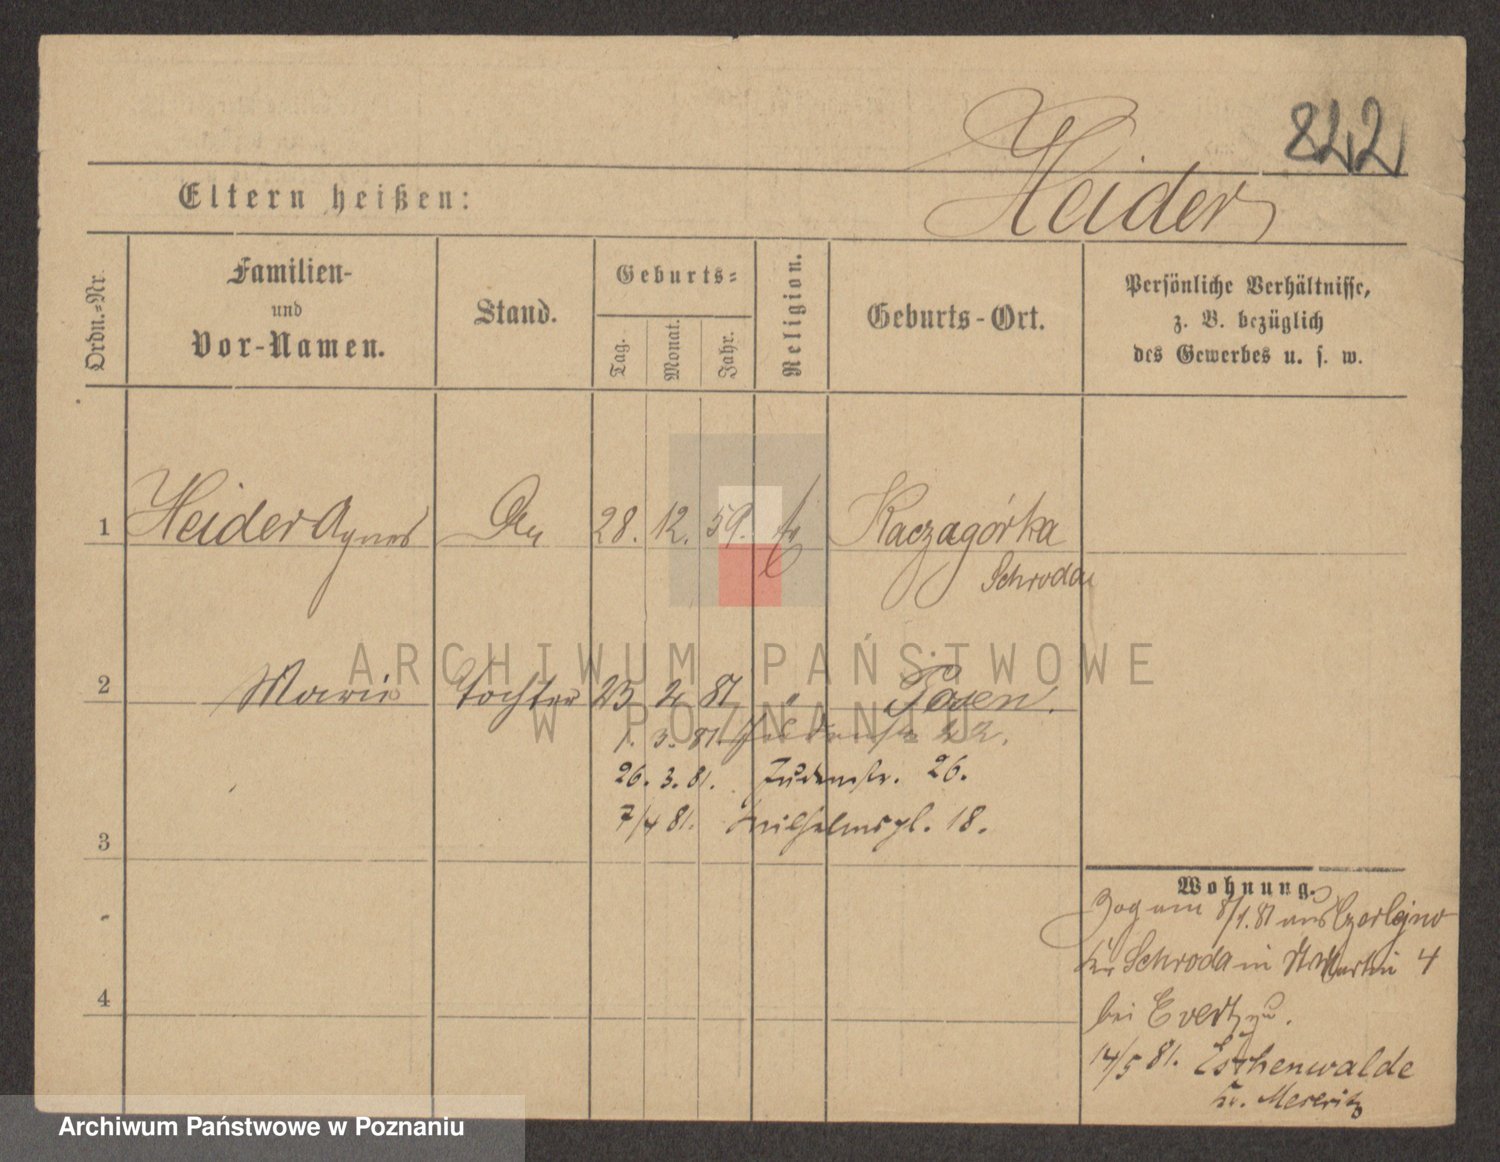 822
Heider
Eltern heißen:
Ordn.-Nr.
Familien-
und
Vor-Namen.
Stand.
Geburts-
Tag.
Monat.
Jahr.
Religion.
Geburts-Ort.
Persönliche Verhältnisse,
z. B. bezüglich
des Gewerbes u. s. w.
1 Heider Agnes 28. 12. 59. Kaczagórka
Schroda
ARCHIWUM PAŃSTWOWE
W POZNANIU
2 Marie Tochter 25 2 81 " Posen.
1. 3. 81. 22.
26. 3. 81. Judenstr. 26.
7/4 81. Wilhelmspl. 18.
3
4
Wohnung.
Zog am 8/1. 81 aus Czerlejno
Kr Schroda in St Martin 4
bei Evert zu.
14/5 81. Eschenwalde
Kr. Meseritz
Archiwum Państwowe w Poznaniu